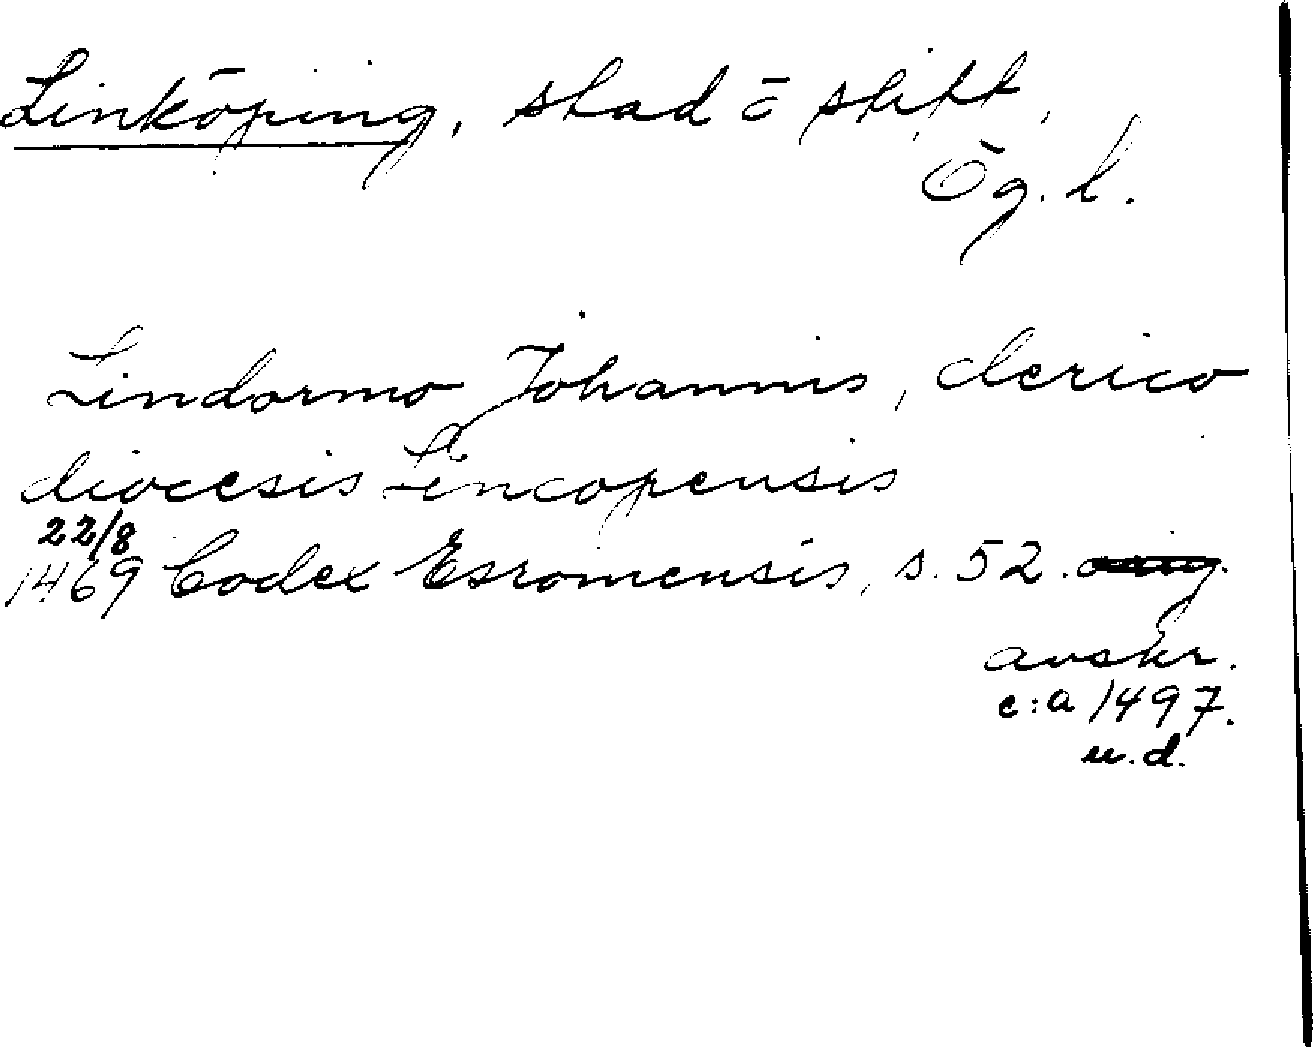 Linköping, stad o stift,
Ög. l.
Lindormo Johannis, clerico
diocesis Lincopensis
22/8
1469 Codex Esromensis, s. 52.
avskr.
c:a 1497.
u.d.